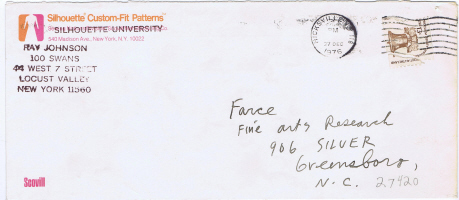 Silhouette Custom-Fit Patterns
SILHOUETTE UNIVERSITY
540 Madison Ave., New York, N.Y. 10022
RAY JOHNSON
100 SWANS
44 WEST 7 STREET
LOCUST VALLEY
NEW YORK 11560
HICKSVILLE
PM
27 DEC
1976
Farce
Fine arts Research
906 SILVER
Greensboro,
N.C. 27420
Scovill